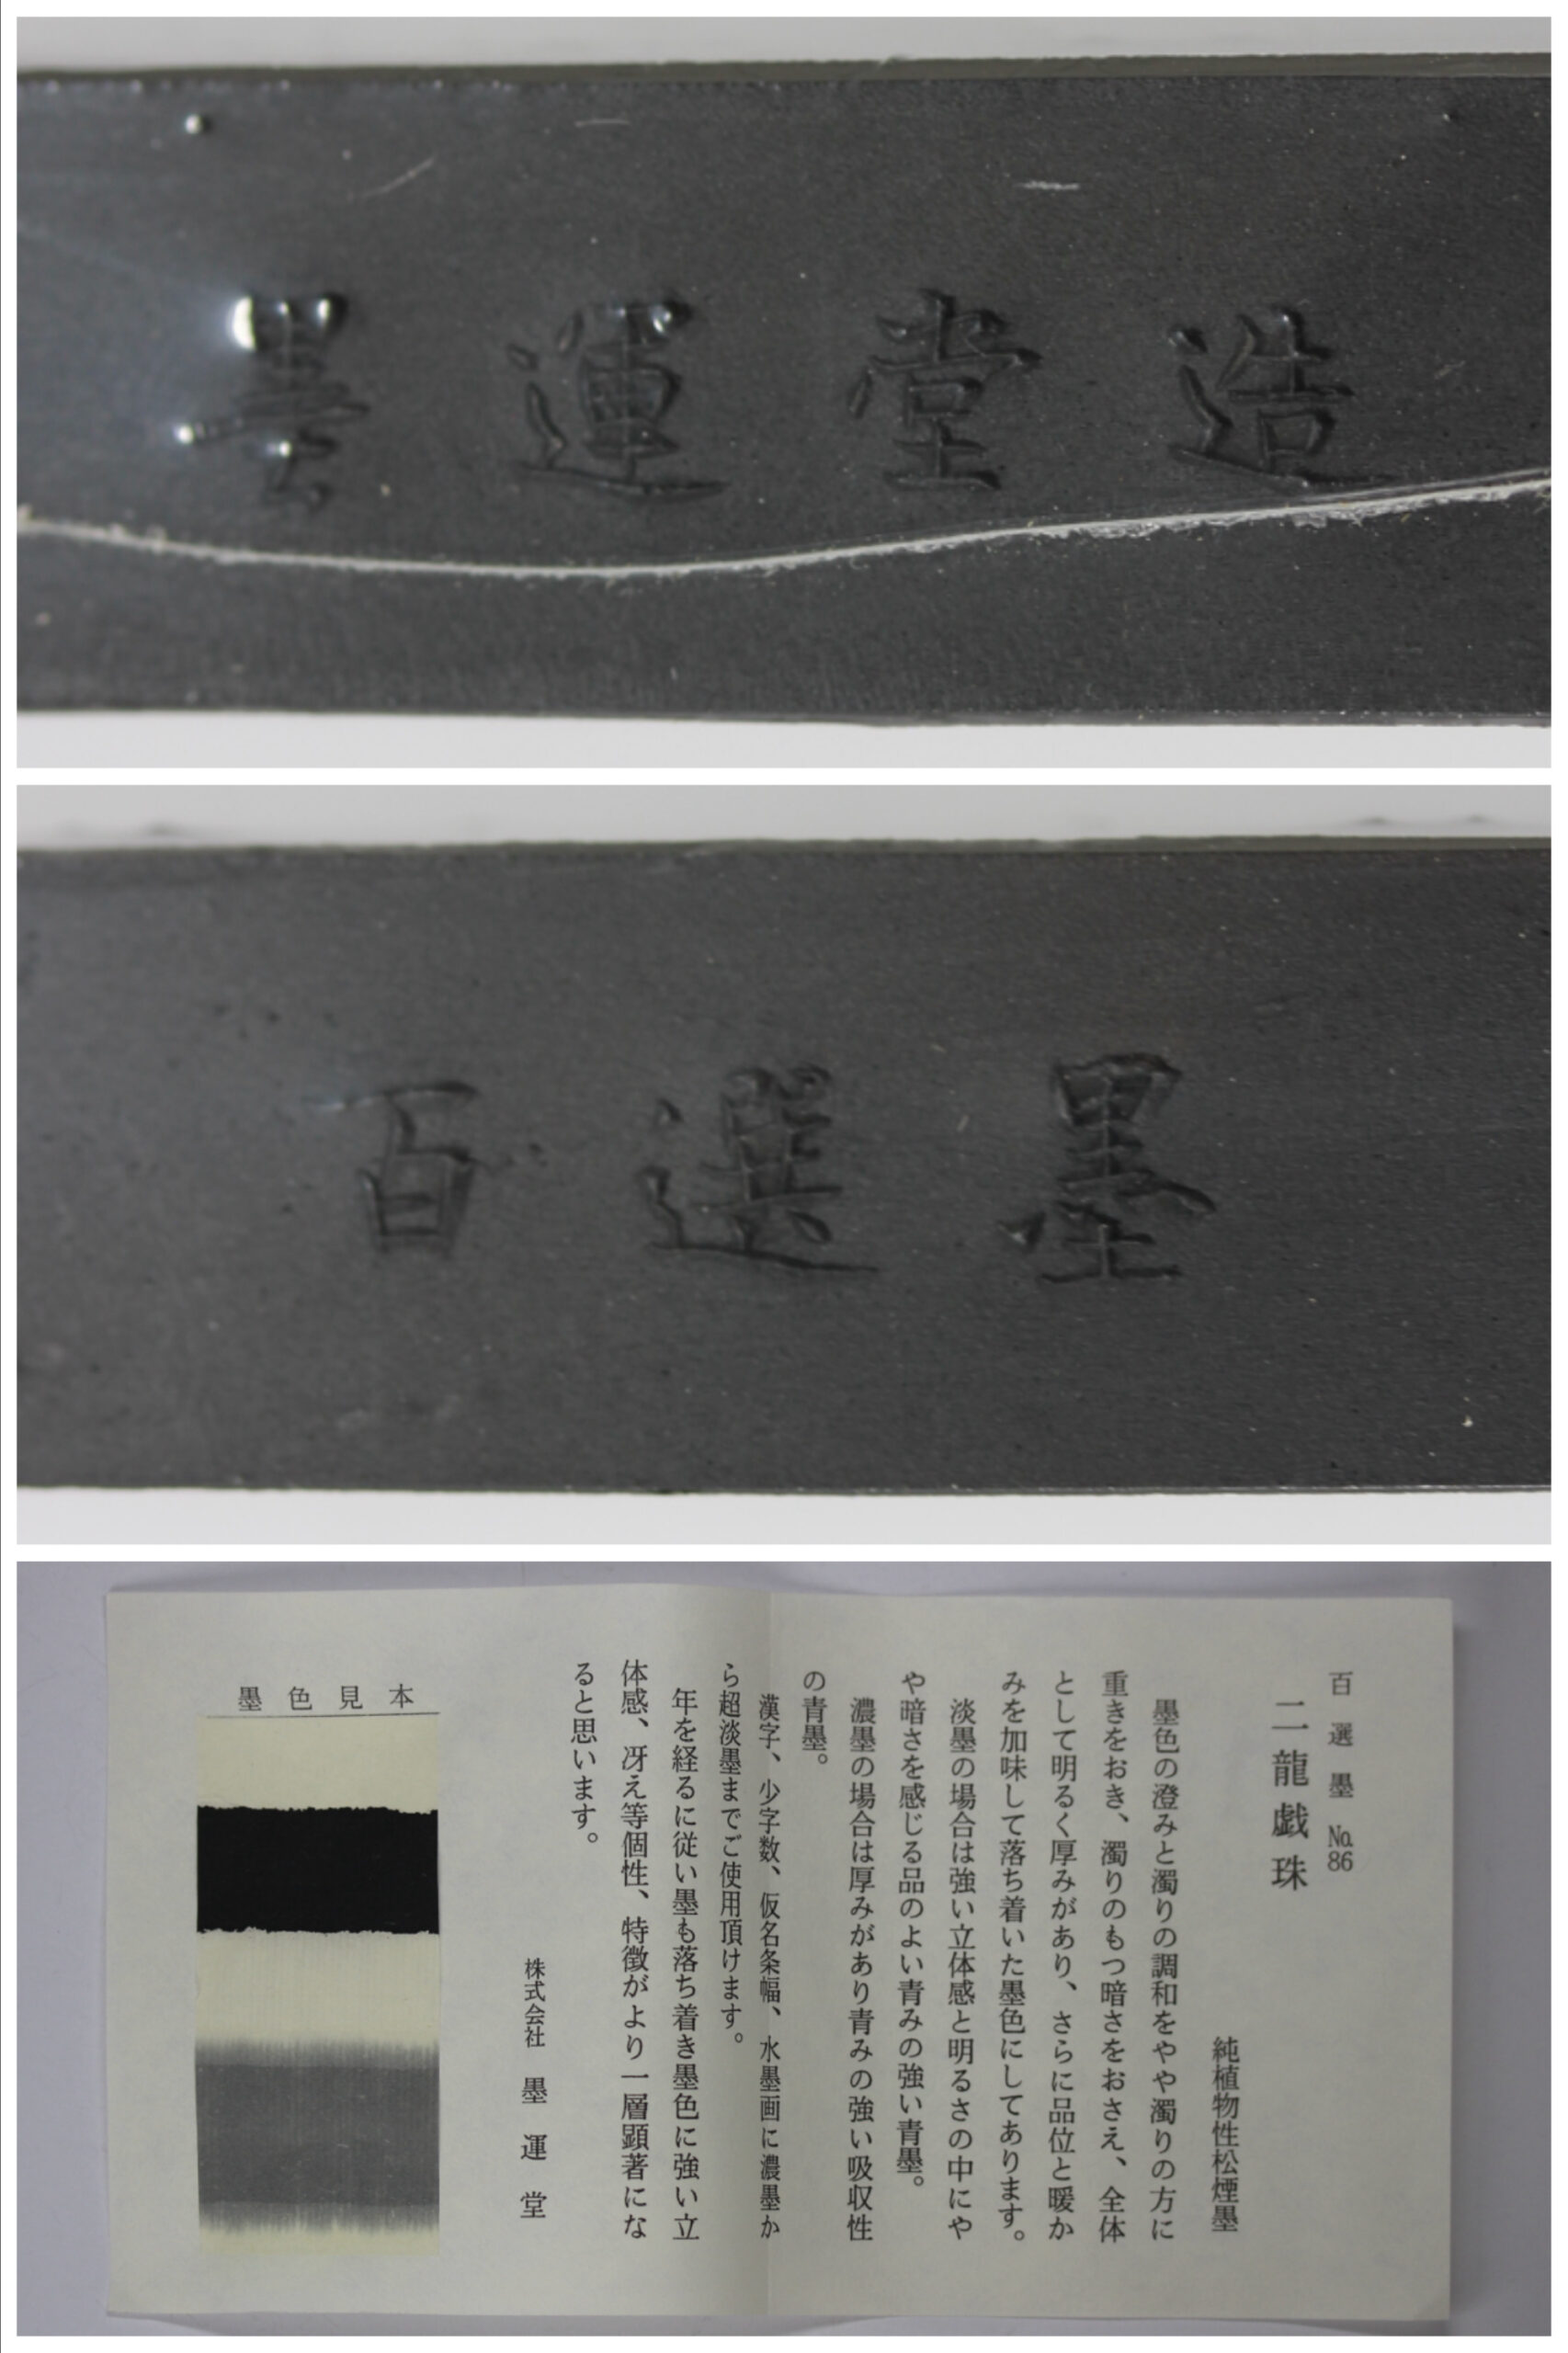 墨運堂造
百選墨
百選墨 №86
二龍戯珠
純植物性松煙墨
墨色の澄みと濁りの調和をやや濁りの方に
重きをおき、濁りのもつ暗さをおさえ、全体
として明るく厚みがあり、さらに品位と暖か
みを加味して落ち着いた墨色にしてあります。
淡墨の場合は強い立体感と明るさの中にや
や暗さを感じる品のよい青みの強い青墨。
濃墨の場合は厚みがあり青みの強い吸収性
の青墨。
漢字、少字数、仮名条幅、水墨画に濃墨か
ら超淡墨までご使用頂けます。
年を経るに従い墨も落ち着き墨色に強い立
体感、冴え等個性、特徴がより一層顕著にな
ると思います。
株式会社 墨運堂
墨色見本